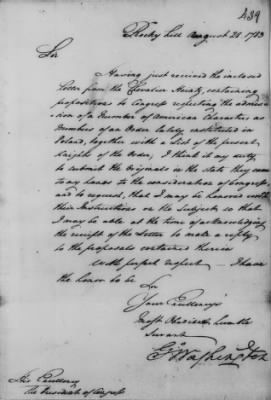 439
Rocky hill August 28 1783
Sir
Having just received the inclosed
Letter from the Chevalier Heintz, containing
propositions to Congress respecting the admiss-
ion of a Number of American Characters as
Members of an Order lately instituted in
Poland, together with a List of the present
Knights of the Order, I think it my duty,
to submit the Originals in the state they came
to my hands to the consideration of Congress,
and to request, that I may be honored with
their Instructions on the Subject, so that
I may be able at the time of acknowledging
the receipt of the Letter to make a reply
to the proposals contained therein
With perfect respect — I have
the honor to be
Sir
Your Excellencys
Most Obedient humble
Servant
Go Washington
His Excellency
The President of Congress